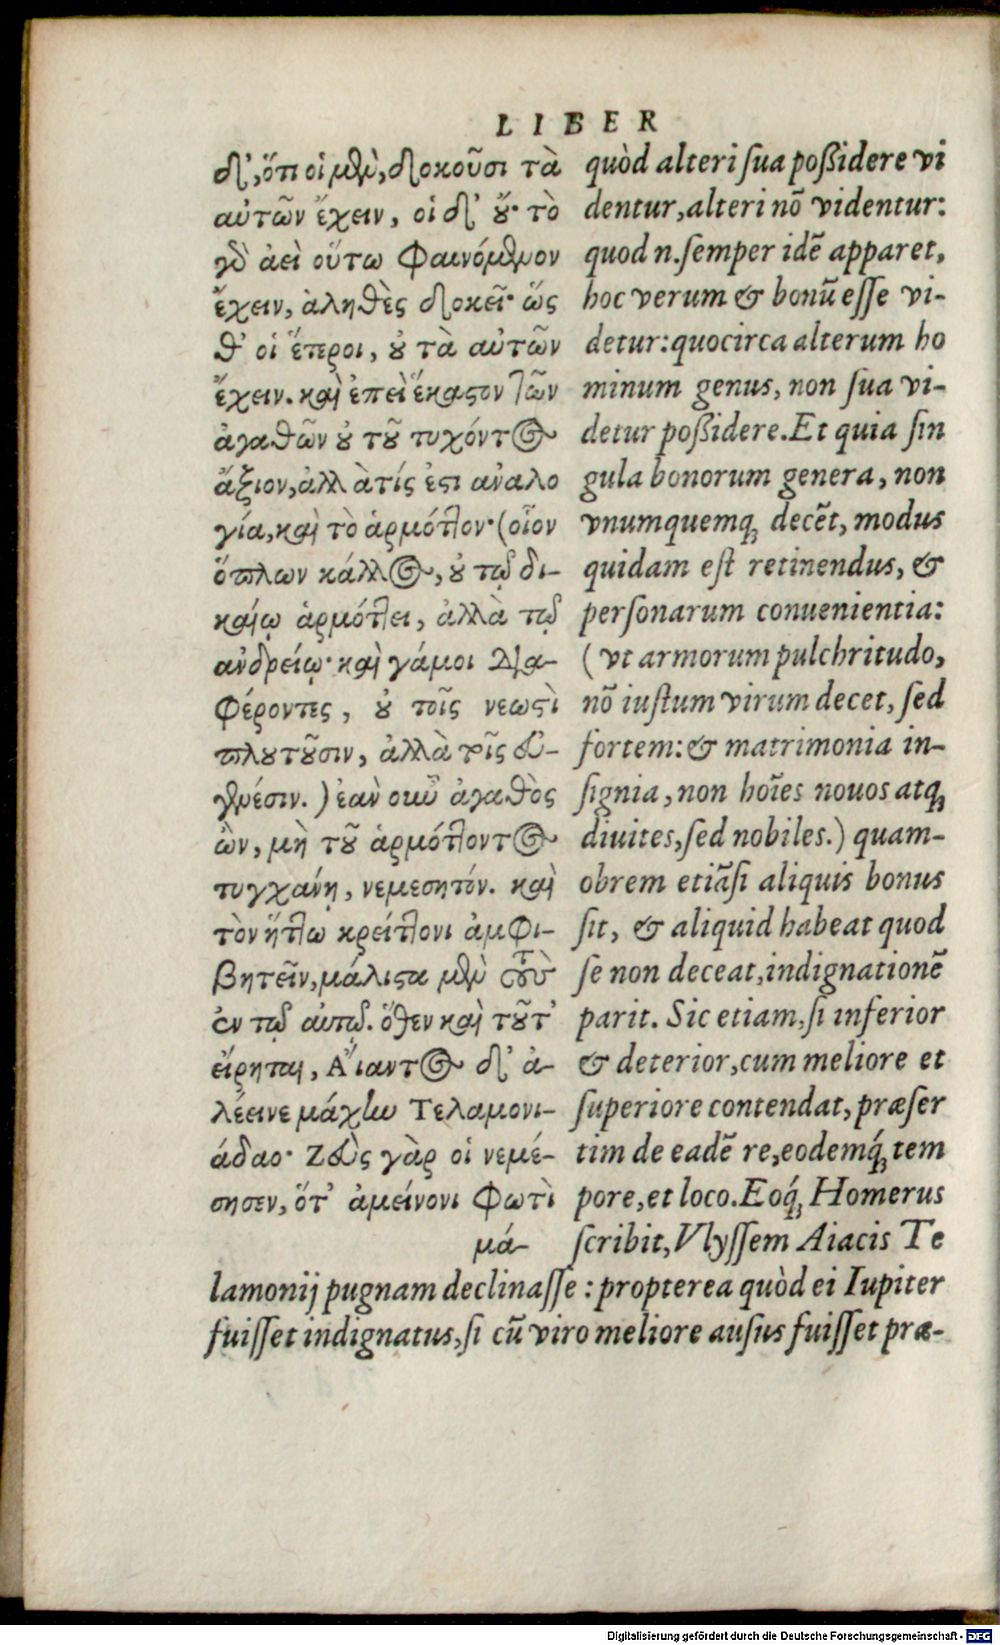 LIBER
δ', ὅτι οἱ μὲν, δοκοῦσι τὰ
αὐτῶν ἔχειν, οἱ δ' οὔ· τὸ
γὸ ἀεὶ οὕτω φαινόμενον
ἔχειν, ἀληθὲς δοκεῖ· ὥς
θ' οἱ ἕτεροι, οὐ τὰ αὐτῶν
ἔχειν. καὶ ἐπεὶ ἕκαστον τῶν
ἀγαθῶν οὐ τοῦ τυχόντος
ἄξιον, ἀλλὰ τίς ἐστι ἀναλο
γία, καὶ τὸ ἁρμόττον· (οἷον
ὅπλων κάλλος, οὐ τῷ δι-
καίῳ ἁρμόττει, ἀλλὰ τῷ
ἀνδρείῳ· καὶ γάμοι δια-
φέροντες, οὐ τοῖς νεωστὶ
πλουτοῦσιν, ἀλλὰ τοῖς εὐ-
γενέσιν.) ἐὰν οὖν ἀγαθὸς
ὢν, μὴ τοῦ ἁρμόττοντος
τυγχάνῃ, νεμεσητόν. καὶ
τὸν ἥττω κρείττονι ἀμφι-
βητεῖν, μάλιστα μὲν τοὺς
ἐν τῷ αὐτῷ. ὅθεν καὶ τοῦτ'
εἴρηται, Αἴαντος δ' ἀ-
λέεινε μάχην Τελαμονι-
άδαο· Ζεὺς γὰρ οἱ νεμέ-
σησεν, ὅτ' ἀμείνονι φωτὶ
μά-
quòd alteri sua poßidere vi
dentur, alteri nō videntur:
quod n. semper idē apparet,
hoc verum & bonū esse vi-
detur: quocirca alterum ho
minum genus, non sua vi-
detur poßidere. Et quia sin
gula bonorum genera, non
vnumquemq; decēt, modus
quidam est retinendus, &
personarum conuenientia:
(vt armorum pulchritudo,
nō iustum virum decet, sed
fortem: & matrimonia in-
signia, non hoīes nouos atq;
diuites, sed nobiles.) quam-
obrem etiāsi aliquis bonus
sit, & aliquid habeat quod
se non deceat, indignationē
parit. Sic etiam, si inferior
& deterior, cum meliore et
superiore contendat, præser
tim de eadē re, eodemq́; tem
pore, et loco. Eoq́; Homerus
scribit, Vlyssem Aiacis Te
lamonij pugnam declinasse : propterea quòd ei Iupiter
fuisset indignatus, si cū viro meliore ausus fuisset præ-
Digitalisierung gefördert durch die Deutsche Forschungsgemeinschaft - DFG